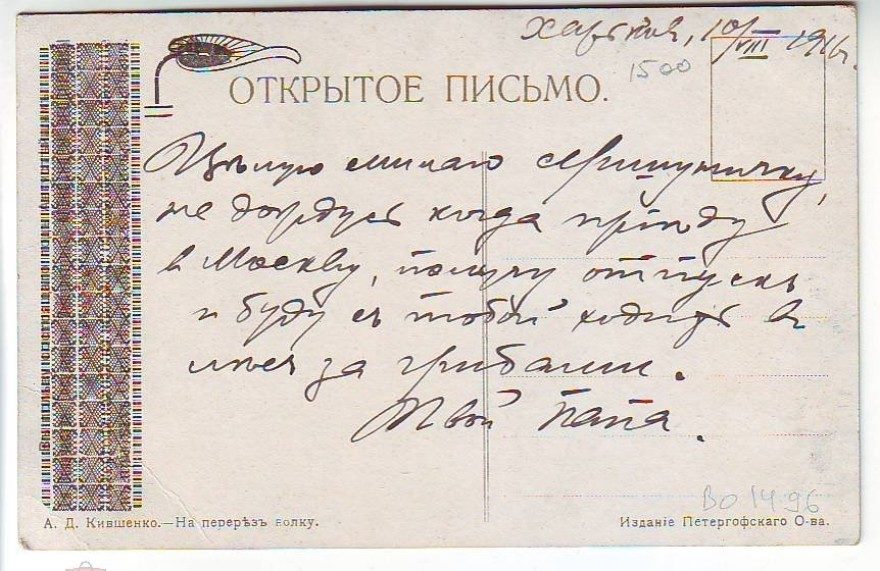 Харьков, 10/VIII 1916г.
1500
ОТКРЫТОЕ ПИСЬМО.
Цѣлую милаго
не дождусь когда пріѣду
в Москву, получу отпускъ
и буду съ тобой ходить в
лѣса за грибами.
Твой папа.
ВО 1496
А. Д. Кившенко.—На перерѣзъ волку.
Изданіе Петергофскаго О-ва.